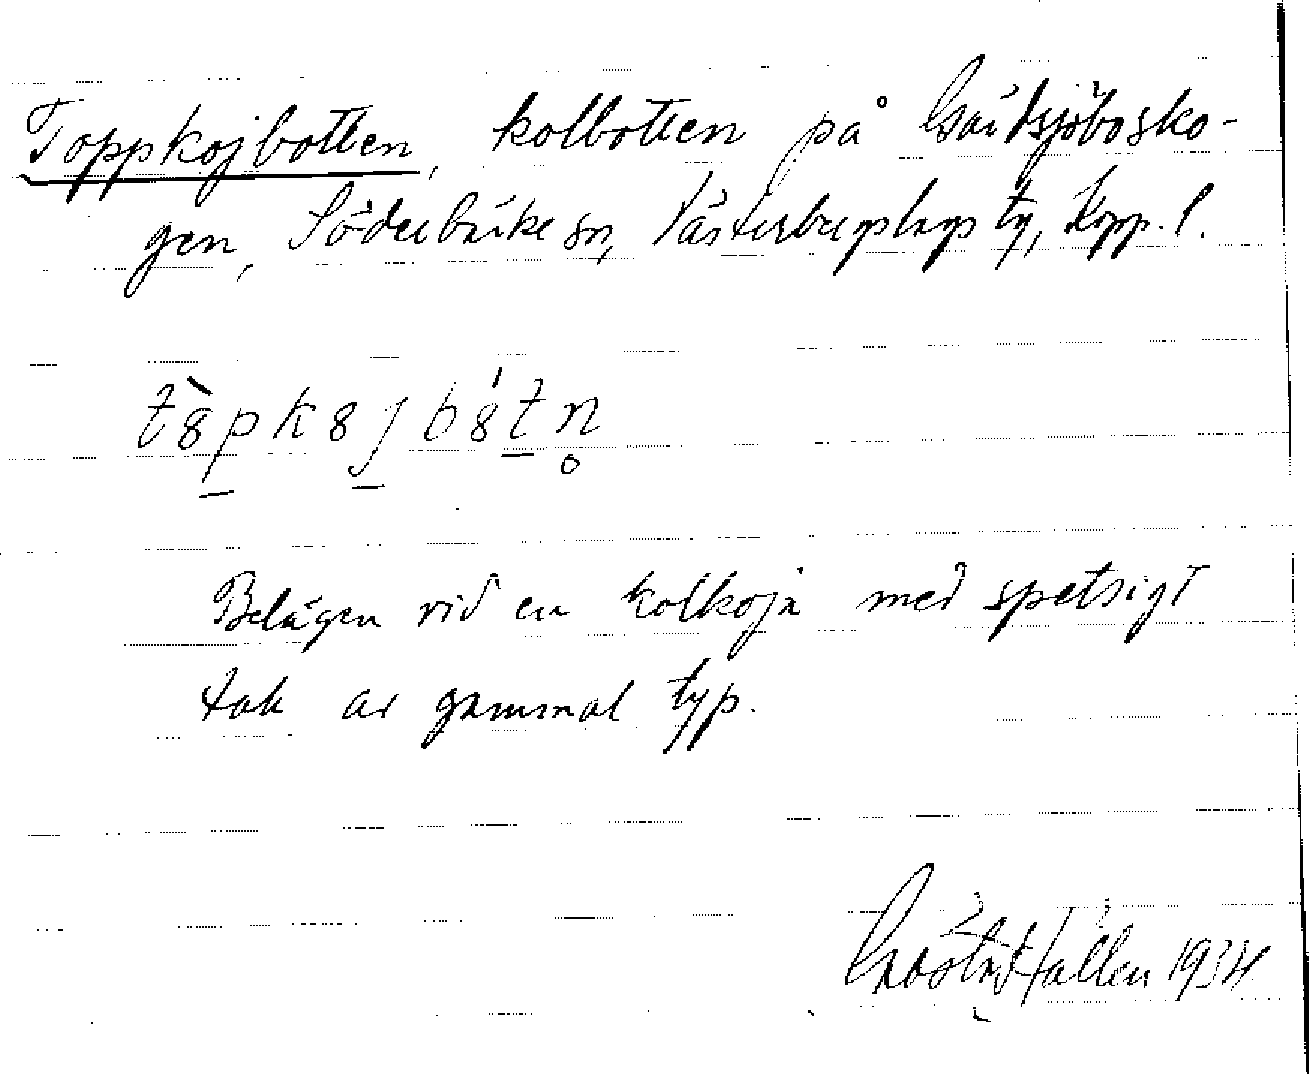 Toppkojbotten, kolbotten på Gårdsjöbosko-
gen, Söderbärke sn, Västerbergslags tg, Kopp. l.
t8̀pk8jb8́tn̥
Belägen vid en kolkoja med spetsigt
tak av gammal typ.
Fallén 1934